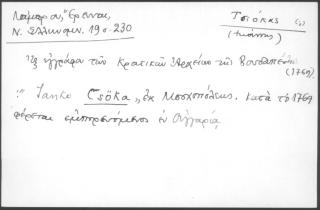 Λάμπρου, Ἔρευναι, Τσιόκας (;)
Ν. Ἑλληνομν. 19ο-230 (Ἰωάννης)
Ἐξ ἐγγράφου τῶν Κρατικῶν Ἀρχείων τῆς Βουδαπέστης
(1769)
:" Ianko Csöka „ ἐκ Μοσχοπόλεως. κατὰ τὸ 1769
φέρεται ἐμπορευόμενος ἐν Οὑγγαρίᾳ